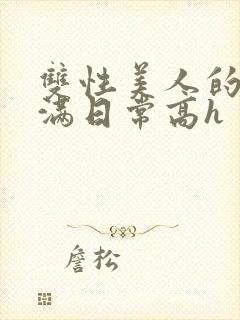 雙性美人的
滿日常高h
詹松